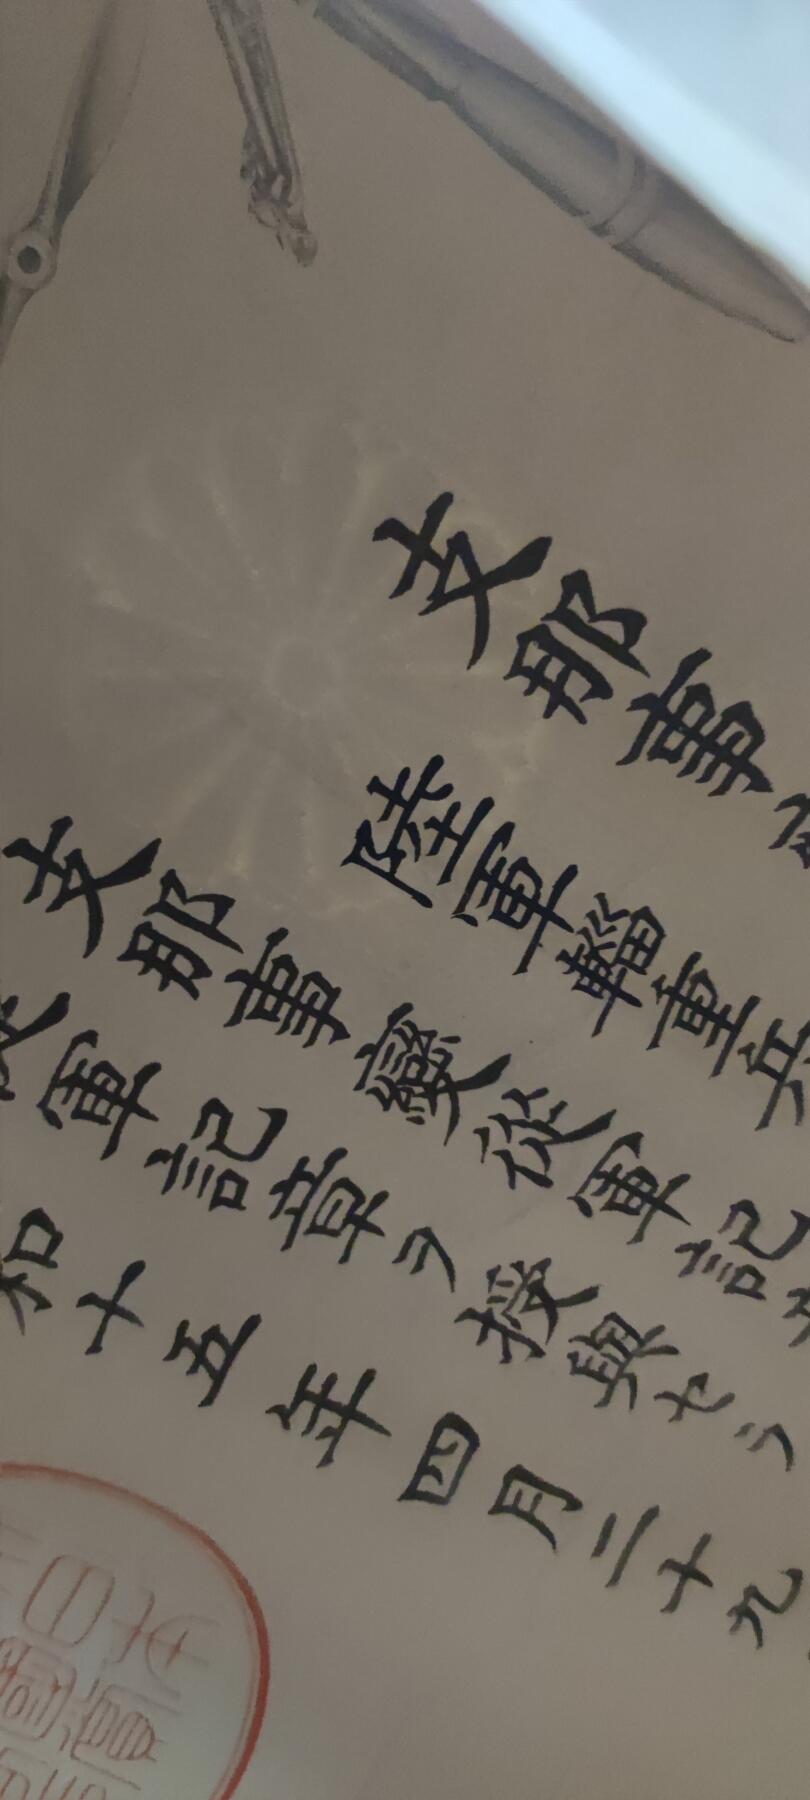 支那事
陸軍輜重兵
支那事變從軍記
軍記章ヲ授與セラ
和十五年四月二十九